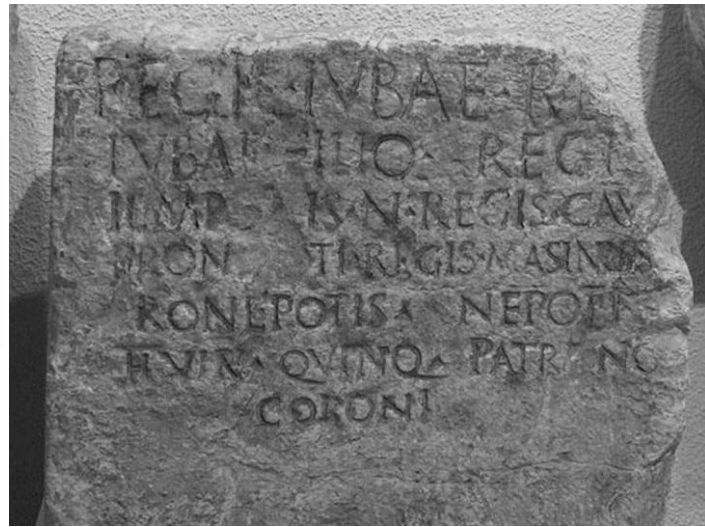 REGI · IVBAE · RE
IVBAE FILIO · REGI
IEMPSALIS · N · REGIS · GAV
PRON TI · REGIS · MASINISS
RONEPOTIS · NEPOTI
II VIR · QVINQ · PATRONO
COLONI